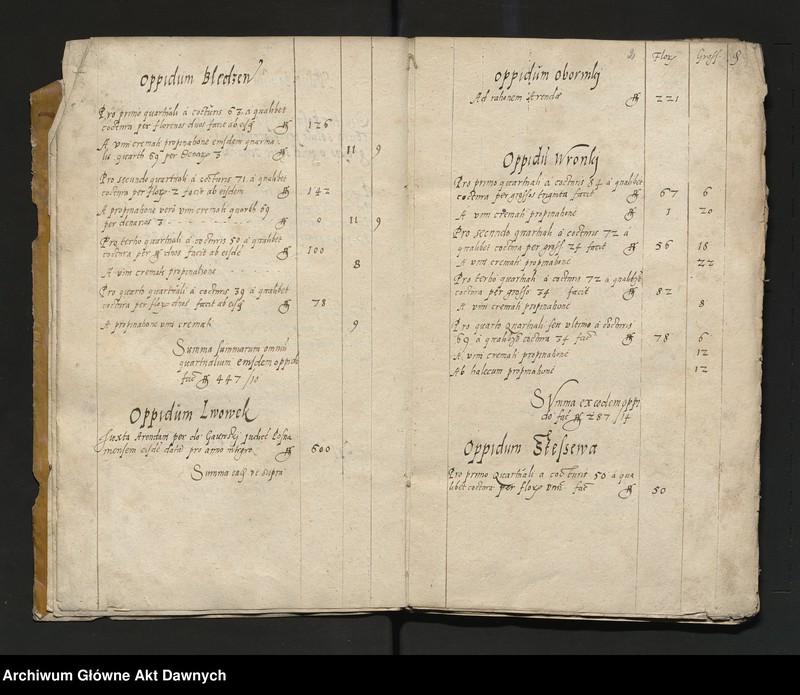 Oppidum Bledzen
Pro primo quartuali a cocturis 63 a qualibet
coctura per florenos duos facit ab eisdem fl 126
A vini cremati propinatione eiusdem quartua
lis quarth 69 per denar 3 11 9
Pro secundo quartuali a cocturis 71 a qualibet
coctura per flor 2 facit ab eisdem fl 142
A propinatione vero vini cremati quarth 69
per denarios 3 0 11 9
Pro tertio quartuali a cocturis 50 a qualibet
coctura per fl duos facit ab eisdem fl 100
A vini cremati propinatione 8
Pro quarto quartuali a cocturis 39 a qualibet
coctura per flor duos facit ab eisdem fl 78
A propinatione vini cremati 9
Summa summarum omnium
quartualium eiusdem oppidi
fac fl 447/10
Oppidum Lwowek
Juxta Arendam per do
mensem eisdem datam pro anno integro fl 600
Summa eadem ut supra
2 Flor Gross
Oppidum Obornik
Ad rationem Arendae fl 221
Oppidu Wronki
Pro primo quartuali a cocturis 84 a qualibet
coctura per grossos triginta facit fl 67 6
A vini cremati propinatione fl 1 20
Pro secundo quartuali a cocturis 72 a
qualibet coctura per gross 24 facit fl 56 18
A vini cremati propinatione 22
Pro tertio quartuali a cocturis 72 a qualibet
coctura per grosso 34 facit fl 82
A vini cremati propinatione 8
Pro quarto quartuali seu ultimo a cocturis
69 a qualibet coctura 34 fac fl 78 6
A vini cremati propinatione 12
Ab halecum propinatione 12
Summa ex eodem oppi
do fac fl 287/14
Oppidum Stessewa
Pro primo quartuali a cocturis 50 a qua
libet coctura per flor unum fac fl 50
Archiwum Główne Akt Dawnych